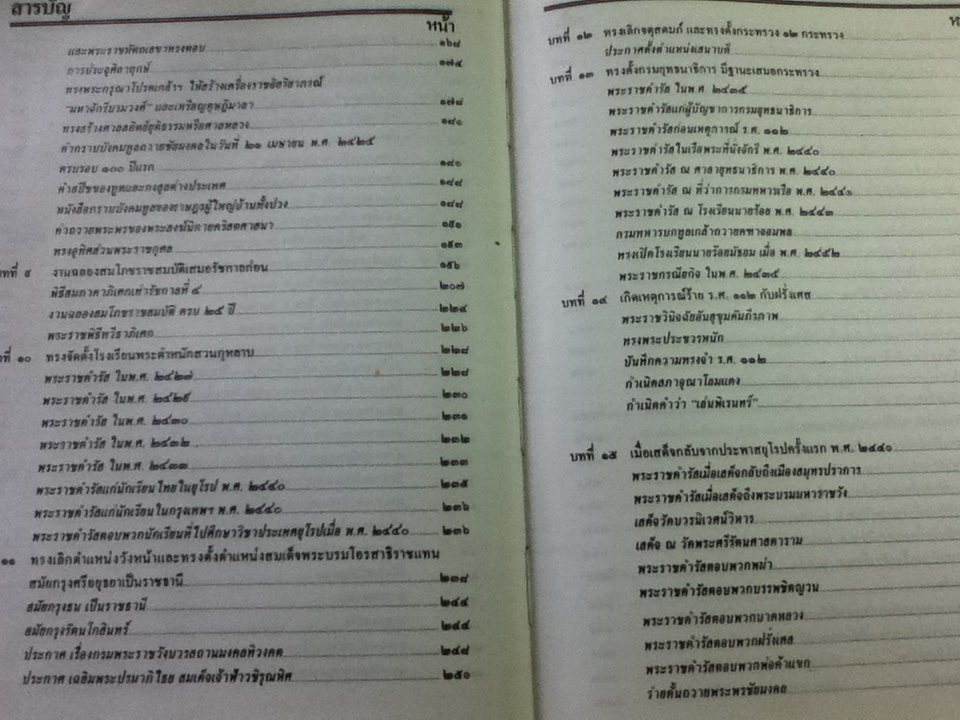 สารบัญ
หน้า
และพระราชหัตถเลขาทรงตอบ ๑๖๘
การประจุศิลาฤกษ์ ๑๗๕
ทรงพระกรุณาโปรดเกล้าฯ ให้สร้างเครื่องราชอิสริยาภรณ์
"มหาจักรีบรมวงศ์" และเหรียญดุษฎีมาลา ๑๗๘
ทรงสร้างศาลสถิตย์ยุติธรรมหรือศาลหลวง ๑๘๑
คำกราบบังคมทูลถวายชัยมงคลในวันที่ ๒๑ เมษายน พ.ศ. ๒๔๒๕
ครบรอบ ๑๐๐ ปีแรก ๑๘๖
คำสปีชของทูตและกงสุลต่างประเทศ ๑๘๘
หนังสือกราบบังคมทูลของราษฎรผู้ใหญ่บ้านทั้งปวง ๑๘๙
คำถวายพระพรของพระสงฆ์นิกายคริสตศาสนา ๑๙๑
ทรงอุทิศส่วนพระราชกุศล ๑๙๓
บทที่ ๙ งานฉลองสมโภชราชสมบัติเสมอรัชกาลก่อน ๑๙๖
พิธีสมภาคาภิเศกเท่ารัชกาลที่ ๔ ๒๐๗
งานฉลองสมโภชราชสมบัติ ครบ ๒๕ ปี ๒๒๔
พระราชพิธีทวีธาภิเศก ๒๒๖
ที่ ๑๐ ทรงจัดตั้งโรงเรียนพระตำหนักสวนกุหลาบ ๒๒๘
พระราชดำรัส ในพ.ศ. ๒๔๒๗ ๒๒๘
พระราชดำรัส ในพ.ศ. ๒๔๒๙ ๒๓๐
พระราชดำรัส ในพ.ศ. ๒๔๓๐ ๒๓๑
พระราชดำรัส ในพ.ศ. ๒๔๓๒ ๒๓๒
พระราชดำรัส ในพ.ศ. ๒๔๓๓ ๒๓๓
พระราชดำรัสแก่นักเรียนไทยในยุโรป พ.ศ. ๒๔๔๐ ๒๓๕
พระราชดำรัสแก่นักเรียนในกรุงเทพฯ พ.ศ. ๒๔๔๐ ๒๓๖
พระราชดำรัสตอบพวกนักเรียนที่ไปศึกษาวิชาประเทศยุโรปเมื่อ พ.ศ. ๒๔๔๐ ๒๓๖
๑๑ ทรงเลิกตำแหน่งวังหน้าและทรงตั้งตำแหน่งสมเด็จพระบรมโอรสาธิราชแทน
สมัยกรุงศรีอยุธยาเป็นราชธานี ๒๓๘
สมัยกรุงธน เป็นราชธานี ๒๔๔
สมัยกรุงรัตนโกสินทร์ ๒๔๔
ประกาศ เรื่องกรมพระราชวังบวรสถานมงคลทิวงคต ๒๔๘
ประกาศ เฉลิมพระปรมาภิไธย สมเด็จเจ้าฟ้าวชิรุณหิศ ๒๕๐
บทที่ ๑๒ ทรงเลิกจตุสดมภ์ และทรงตั้งกระทรวง ๑๒ กระทรวง
ประกาศตั้งตำแหน่งเสนาบดี
บทที่ ๑๓ ทรงตั้งกรมยุทธนาธิการ มีฐานะเสมอกระทรวง
พระราชดำรัส ในพ.ศ. ๒๔๓๕
พระราชดำรัสแก่ผู้บัญชาการกรมยุทธนาธิการ
พระราชดำรัสก่อนเหตุการณ์ ร.ศ. ๑๑๒
พระราชดำรัสในเรือพระที่นั่งจักรี พ.ศ. ๒๔๔๐
พระราชดำรัส ณ ศาลายุทธนาธิการ พ.ศ. ๒๔๔๐
พระราชดำรัส ณ ที่ว่าการกรมทหารเรือ พ.ศ. ๒๔๔๑
พระราชดำรัส ณ โรงเรียนนายร้อย พ.ศ. ๒๔๔๓
กรมทหารบกทูลเกล้าถวายคฑาจอมพล
ทรงเปิดโรงเรียนนายร้อยมัธยม เมื่อ พ.ศ. ๒๔๕๒
พระราชกรณียกิจ ในพ.ศ. ๒๔๓๕
บทที่ ๑๔ เกิดเหตุการณ์ร้าย ร.ศ. ๑๑๒ กับฝรั่งเศส
พระราชวินิจฉัยอันสุขุมคัมภีรภาพ
ทรงพระประชวรหนัก
บันทึกความทรงจำ ร.ศ. ๑๑๒
กำเนิดสภาอุณาโลมแดง
กำเนิดคำว่า "เล่นพิเรนทร์"
บทที่ ๑๕ เมื่อเสด็จกลับจากประพาสยุโรปครั้งแรก พ.ศ. ๒๔๔๐
พระราชดำรัสเมื่อเสด็จกลับถึงเมืองสมุทรปราการ
พระราชดำรัสเมื่อเสด็จถึงพระบรมมหาราชวัง
เสด็จวัดบวรนิเวศน์วิหาร
เสด็จ ณ วัดพระศรีรัตนศาสดาราม
พระราชดำรัสตอบพวกพม่า
พระราชดำรัสตอบพวกบรรพชิตญวน
พระราชดำรัสตอบพวกบาดหลวง
พระราชดำรัสตอบพวกฝรั่งเศส
พระราชดำรัสตอบพวกพ่อค้าแขก
ร่ายดั้นถวายพระพรชัยมงคล